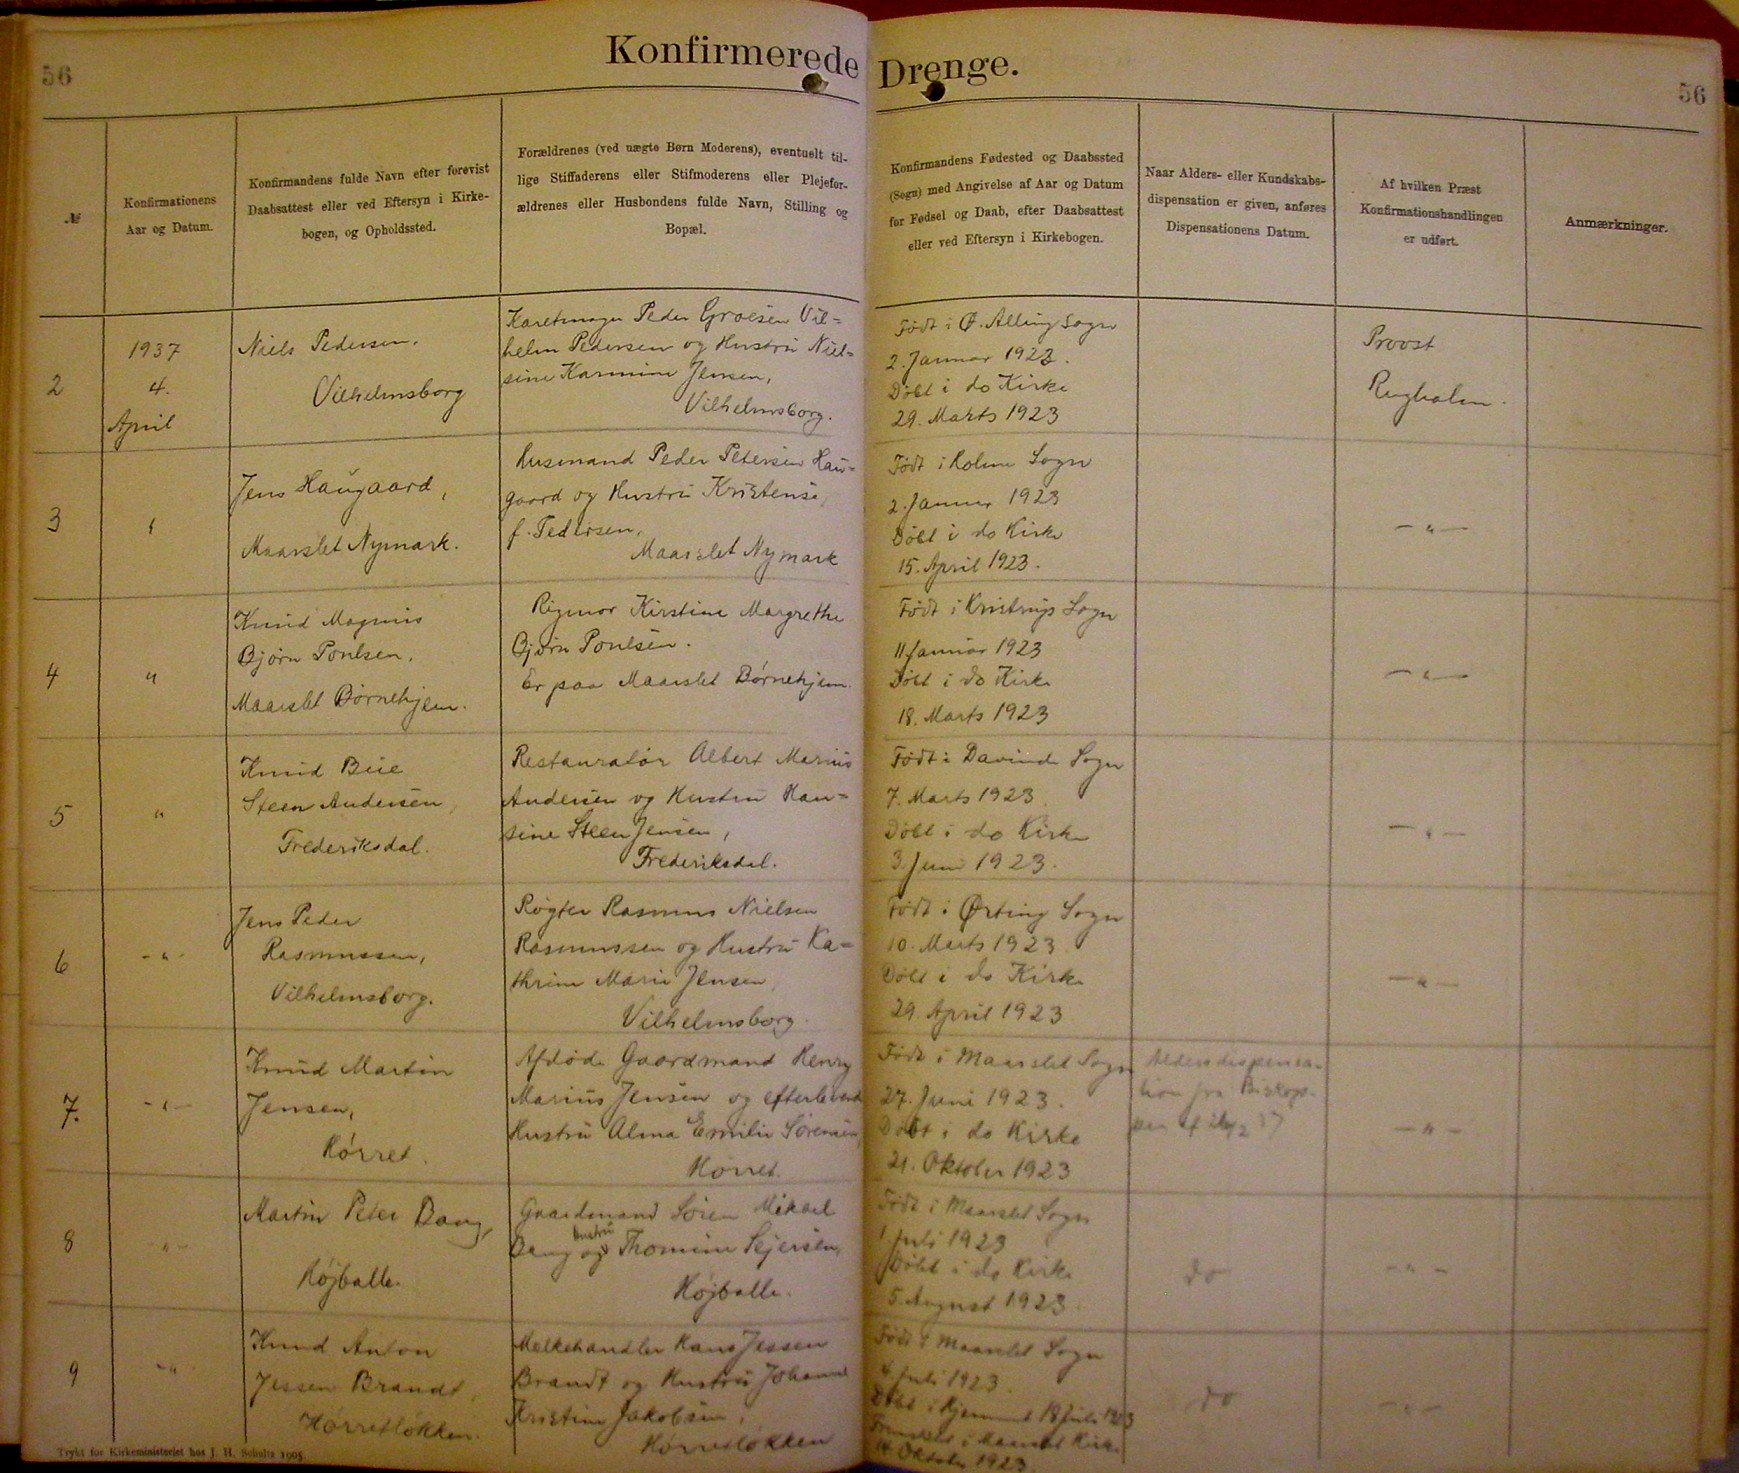 56
Konfirmerede Drenge.
56
№
Konfirmationens
Aar og Datum.
Konfirmandens fulde Navn efter forevist
Daabsattest eller ved Eftersyn i Kirke-
bogen, og Opholdssted.
Forældrenes (ved uægte Børn Moderens), eventuelt til-
lige Stiffaderens eller Stifmoderens eller Plejefor-
ældrenes eller Husbondens fulde Navn, Stilling og
Bopæl.
Konfirmandens Fødested og Daabssted
(Sogn) med Angivelse af Aar og Datum
for Fødsel og Daab, efter Daabsattest
eller ved Eftersyn i Kirkebogen.
Naar Alders- eller Kundskabs-
dispensation er given, anføres
Dispensationens Datum.
Af hvilken Præst
Konfirmationshandlingen
er udført.
Anmærkninger.
2
1937
4.
April
Niels Pedersen,
Vilhelmsborg
Karetmager Peder Groesen Vil=
helm Pedersen og Hustru Niel=
sine Karmine Jensen,
Vilhelmsborg.
Født i Ø. Alling Sogn
2. Januar 1923.
Døbt i do Kirke
29. Marts 1923
Provst
Rugholm.
3
"
Jens Haugaard,
Maarslet Nymark.
Husmand Peder Petersen Hau=
gaard og Hustru Kristense,
f. Pedersen,
Maarslet Nymark
Født i Holme Sogn
2. Januar 1923
Døbt i do Kirke
15. April 1923.
— " —
4
"
Knud Magnus
Bjørn Poulsen,
Maarslet Børnehjem.
Rigmor Kirstine Margrethe
Bjørn Poulsen.
Er paa Maarslet Børnehjem.
Født i Kristrup Sogn
11 Januar 1923
Døbt i do Kirke
18. Marts 1923
— " —
5
"
Knud Beie
Steen Andersen,
Frederiksdal.
Restauratør Albert Marius
Andersen og Hustru Han=
sine Steen Jensen,
Frederiksdal.
Født i Davinde Sogn
7. Marts 1923
Døbt i do Kirke
3. Juni 1923.
— " —
6
- " -
Jens Peder
Rasmussen,
Vilhelmsborg.
Røgter Rasmus Nielsen
Rasmussen og Hustru Ka=
thrine Marie Jensen,
Vilhelmsborg.
Født i Ørting Sogn
10. Marts 1923.
Døbt i do Kirke
29. April 1923
— " —
7.
- " -
Knud Martin
Jensen,
Hørret.
Afdøde Gaardmand Henry
Marius Jensen og efterlevende
Hustru Alma Emilie Sørensen,
Hørret.
Født i Maarslet Sogn
27. Juni 1923.
Døbt i do Kirke
21. Oktober 1923
Aldersdispensa-
tion fra Biskop-
pen
— " —
8
- " -
Martin Peter Bang,
Højballe.
Gaardmand Søren Mikael
Bang og Hustru Thomine Sejersen,
Højballe.
Født i Maarslet Sogn
1 Juli 1923
Døbt i do Kirke
5. August 1923.
do
- " -
9
- " -
Knud Anton
Jessen Brandt,
Hørretløkken.
Melkehandler Hans Jessen
Brandt og Hustru Johanne
Kristine Jakobsen,
Hørretløkken
Født i Maarslet Sogn
4. Juli 1923.
Døbt i Hjemmet 18 Juli 1923
Fremstillet i Maarslet Kirke
14 Oktober 1923.
do
- " -
Trykt for Kirkeministeriet hos J. H. Schultz 1905.